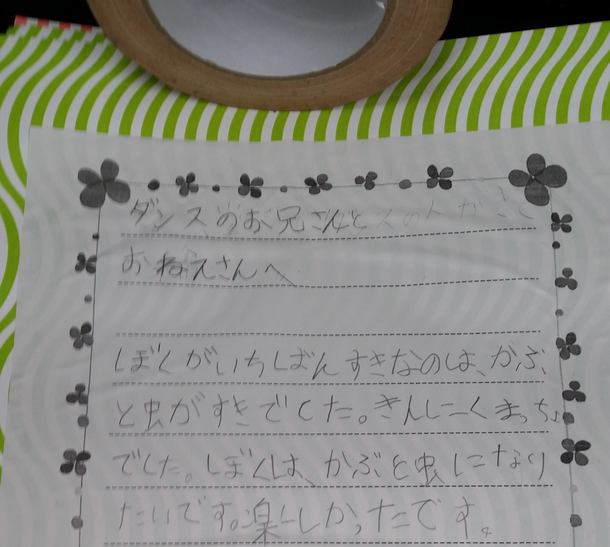 ダンスのお兄さんと
おねえさんへ
ぼくがいちばんすきなのは、かぶ
と虫がすきでした。きんにくまっちょ
でした。ぼくは、かぶと虫になり
たいです。楽しかったです。